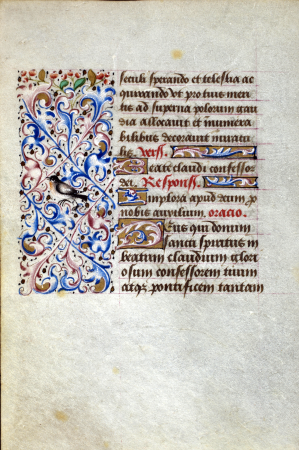 seculi sperando et celestia ac
quirando vt pro tuis meri
tis ad superna polorum gau
dia assocarit et innumera
bilibus decorauit miracu
lis Vers.
Beati claudi confesso
ris. Respons.
Implora apud deum p
nobis auxilium. oracio.
Deus qui donum
sancti spiritus in
beatum claudium glori
osum confessorem tuum
atque pontificem tantam